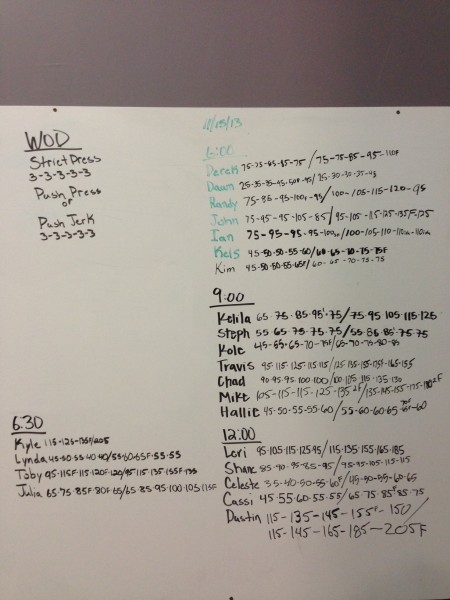 WOD
Strict Press
3-3-3-3-3
Push Press
or
Push Jerk
3-3-3-3-3
11/15/13
6:00
Derek 75-75-85-95-75 / 75-75-85-95-110F
Dawn
Randy 75-85-95-100-95 / 100-105-115-120-95
John 75-95-95-105-85 / 95-105-115-125-135F-125
Ian 75-95-95-95-100 / 100-105-110-110-110
Kels 45-50-50-55-60 / 60-65-70-75-75F
Kim 45-50-50-55-65F / 60-65-70-75-75
9:00
Kelila 65.75.85.95.75 / 75.95.105.115.125
Steph 55.65.75.75.75 / 55.86.85.75.75
Kole 45-55-65-70-75F / 65-70-75-80-85
Travis 95.115.125.115.115 / 125.135.155.155.165.155
Chad 90.95.95.100.100 / 100.115.115.135.130
Mike 105-115-115-125-135 2F / 135-145-155-175-190 2F
Hallie 45-50-55-55-60 / 55-60-60-65
6:30
Kyle 115-125-135F/205
Lynda 45-50-55-40-40/55-60-65F-55-55
Toby 95-115F-115-120F-120/95-115-135-155F-135
Julia 65-75-85F-80F-65/65-85-95-100-105-115F
12:00
Lori 95.105.115.125.95 / 115.135.155.165.185
Shane 85-90-95-85-95 / 95-95-105-115-115
Celeste 35-40-50-55-60F / 45-50-55-60-65
Cassi 45.55.60.55.55 / 65.75.85F.85.75
Dustin 115-135-145-155F-150/
115-145-165-185-205F